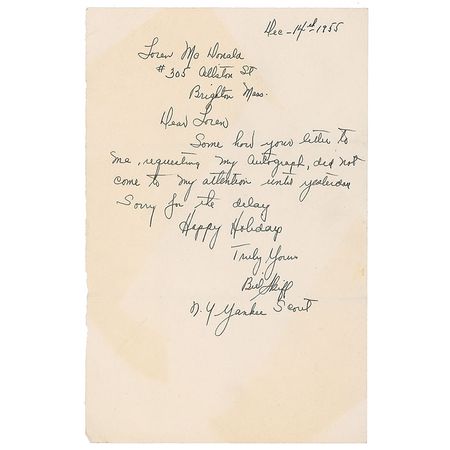 Dec-14th-1955
Loren Mc Donald
#305 Allston St
Brighton Mass.
Dear Loren
Some how your letter to
me, requesting my Autograph, did not
come to my attention until yesterday
Sorry for the delay
Happy Holidays
Truly Yours
Bill Skiff
N.Y Yankee Scout